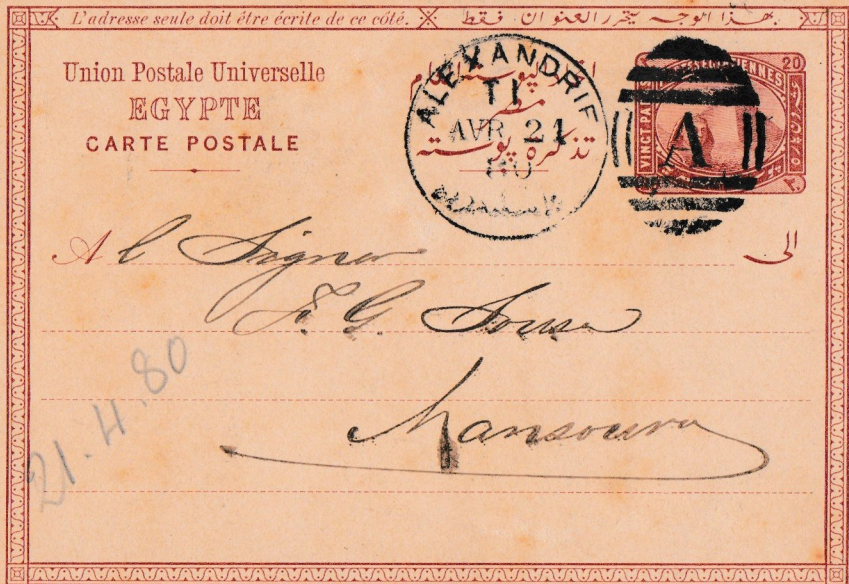 L'adresse seule doit être écrite de ce côté.
بهذا الوجه يتحرر العنوان فقط
Union Postale Universelle
EGYPTE
CARTE POSTALE
مصر
تذكرة بوسته
ALEXANDRIE
TI
AVR 21
80
A
20
VINGT PARAS
٢٠
Al Signor
الى
F. G. Sousa
Mansoura
21.4.80